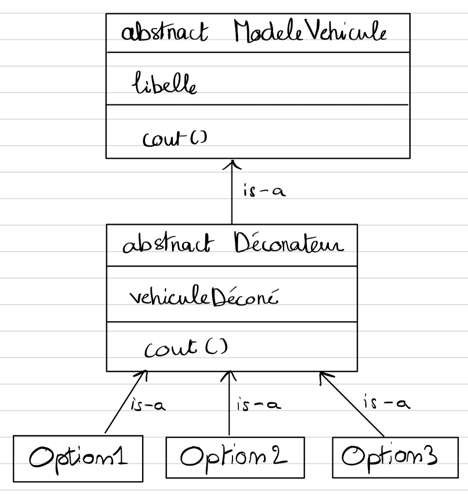 abstract ModeleVehicule
libelle
cout()
is-a
abstract Décorateur
vehiculeDécoré
cout()
is-a
is-a
is-a
Option1
Option2
Option3